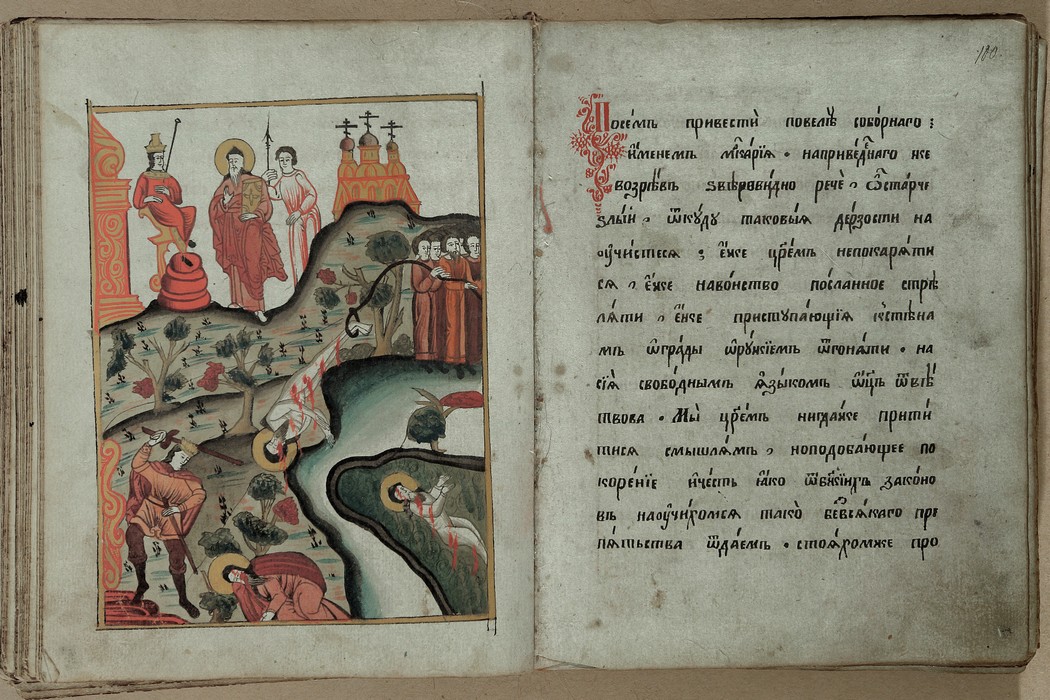 100.
Посе́мъ привестѝ повелѣ̀ собо́рнаго :
и́менемъ мака́рїа • наприведе́наго же
возрѣ́въ ѕвѣрови́дно речѐ , Ѽ ста́рче
ѕлы́и , ѿкꙋ́дꙋ таковы́ѧ де́рзости на
оучи́стесѧ ; є́же црє́мъ непокарѧ́ти
сѧ , є́же наво́инство по́сланное стрѣ
лѧ́ти , є́же приступа́ющїѧ кстѣна
мъ ѡгра́ды ѡрꙋ́жїемъ ѿгонѧ́ти • на
сїѧ̀ свобо́днымъ ѧ҆зы́комъ ѻ҆ц҃ъ ѿвѣ̀
твова • Мы̀ црє́мъ никда́же прити́
тисѧ смышлѧ́мъ , ноподоба́ющее по
коре́нїе и҆че́сть ꙗ҆́ко зако́но
въ наоучи́хомсѧ та́кѡ безвсѧ́каго пре
пѧ́тьства ѿдае́мъ • стоѧ́хомже про